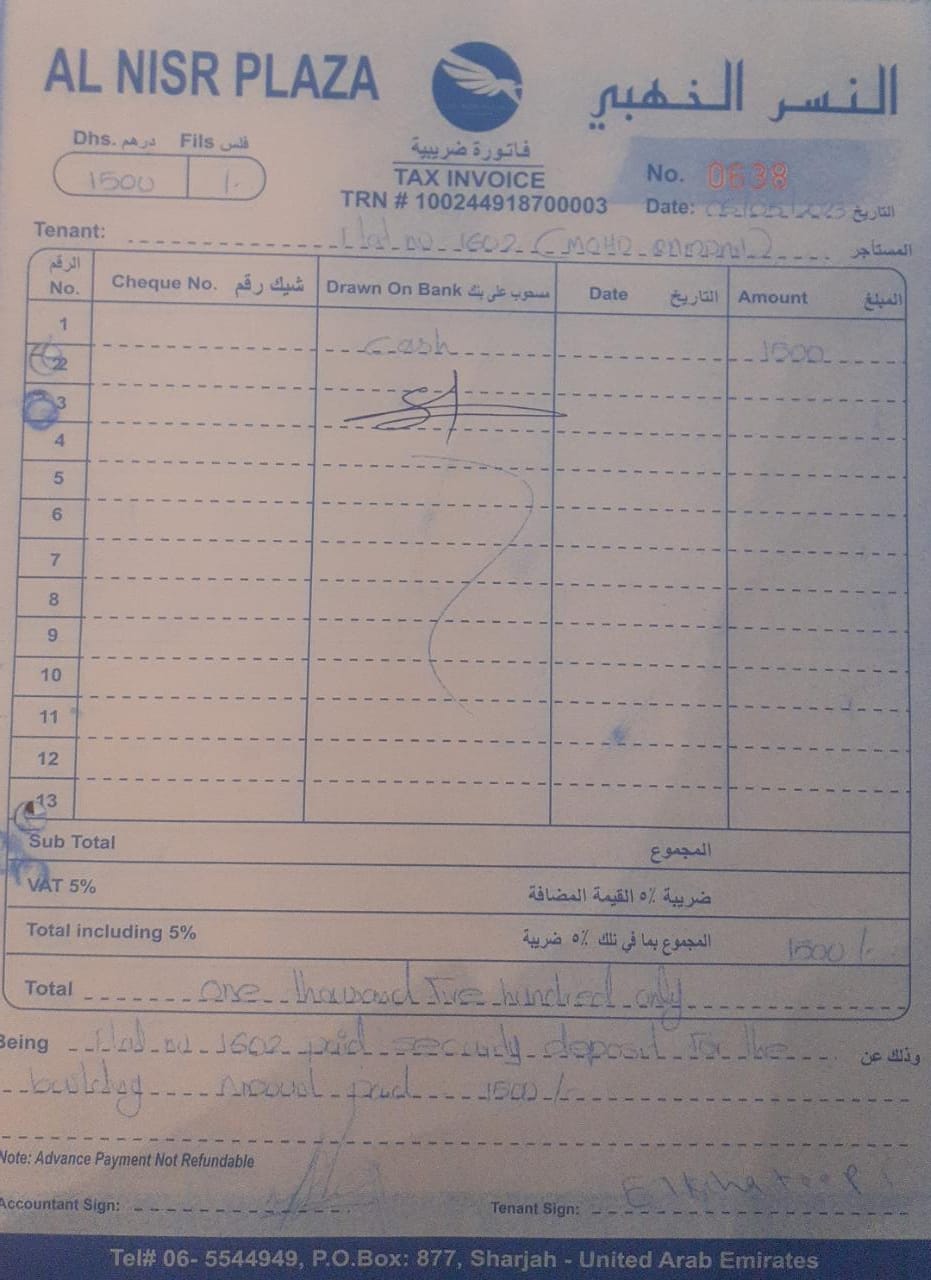 AL NISR PLAZA
النسر الذهبي
Dhs. درهم Fils فلس
1500 /.
فاتورة ضريبية
TAX INVOICE
TRN # 100244918700003
No. 0638
Date: /2023 التاريخ
Tenant: Flat no 1602 (MOHD المستأجر
الرقم No. Cheque No. شيك رقم Drawn On Bank مسحوب على بنك Date التاريخ Amount المبلغ
1 Cash 1500
2
3
4
5
6
7
8
9
10
11
12
13
Sub Total المجموع
VAT 5% ضريبة ٥٪ القيمة المضافة
Total including 5% المجموع بما في ذلك ٥٪ ضريبة 1500/.
Total One thousand Five hundred only
Being Flat no 1602 paid security deposit For the وذلك عن
building Amount paid 1500/.
Note: Advance Payment Not Refundable
Accountant Sign:
Tenant Sign:
Tel# 06- 5544949, P.O.Box: 877, Sharjah - United Arab Emirates